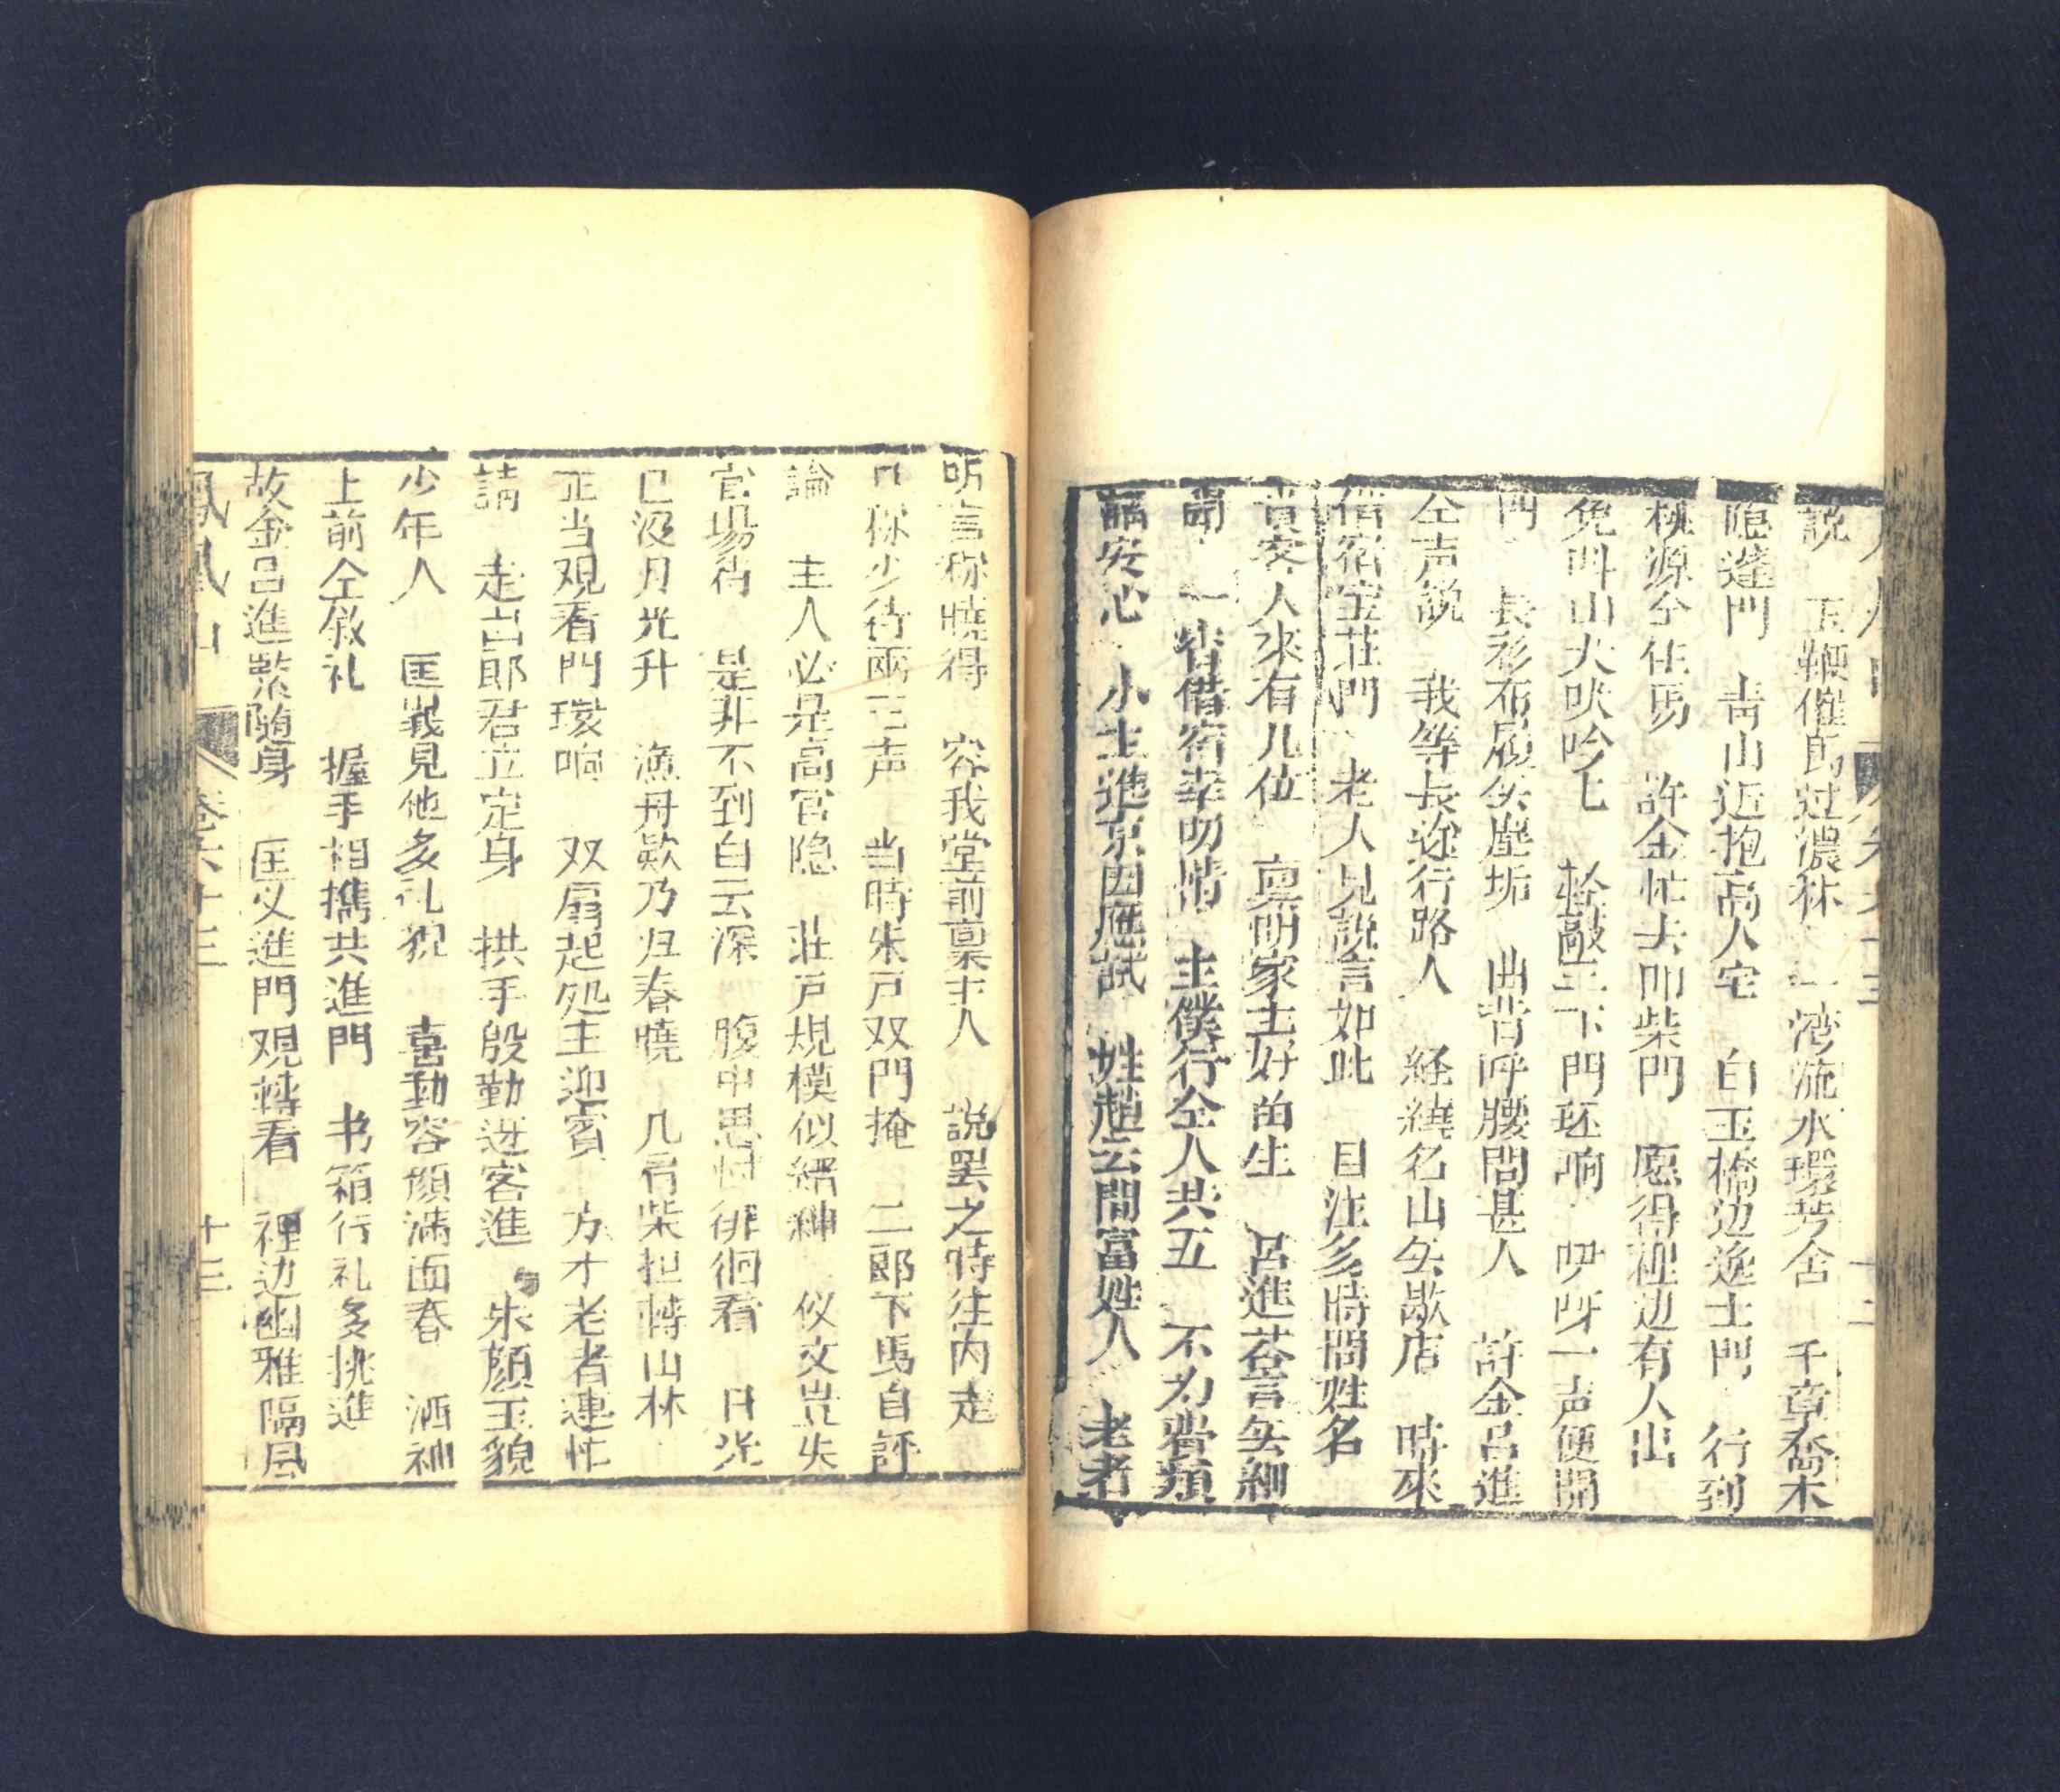 說　玉鞭催馬过濃林　一湾流水環芳舍　千章喬木
隐蓬門　青山近抱高人宅　白玉橋边逸士門　行到
桃源仝住馬　許金忙去叩柴門　應得裡边有人出
免叫山犬吠吟七　輕敲三下門环响　咿呀一声便開
門　長衫布履矣塵垢　曲背呼腰問甚人　許金呂進
仝声說　我等長途行路人　経繞名山矣歇店　時來
借宿宝莊門　老人見說言如此　目注多時問姓名
貴客人來有几位　稟明家主好畄生　呂進荅言矣細
開　一宵借宿幸叨情　主僕行仝人共五　不为費類
請安心　小主進京因應試　姓趙云間富姓人　老者
听言称曉得　容我堂前稟主人　說罢之時往内走
只称少待兩三声　当時朱戸双門掩　二郎下馬自評
論　主人必是高官隐　莊戸規模似縉紳　仪文豈失
官場行　是非不到白云深　腹中思忖徘徊看　日光
已沒月光升　漁舟欸乃归春曉　几肩柴担轉山林
正当观看門環响　双扇起処主迎賓　方才老者連忙
請　走出郎君立定身　拱手殷勤迓客進　朱顔玉貌
少年人　匡義見他多礼貌　喜動容顔滿面春　洒袖
上前仝叙礼　握手相携共進門　书箱行礼多挑進
故金呂進緊随身　匡义進門观轉看　裡边幽雅隔凡
鳳凰山　卷六十三　十三